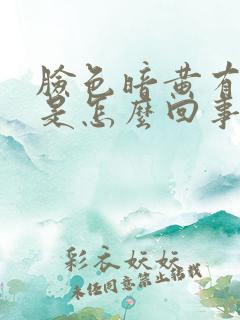 臉色暗黃有
是怎麼回事
彩衣妖妖
未经同意禁止转载